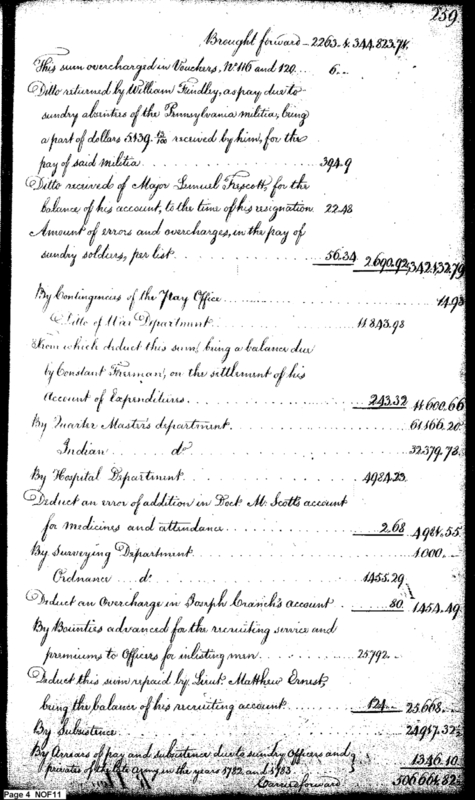 259
Brought forward — 2263.4. 344.823.74.
This sum overcharged in Vouchers, No. 116 and 120 . . . 6 . .
Ditto returned by William Findley, as pay due to
sundry absentees of the Pennsylvania militia, being
a part of dollars 5.139. received by him, for the
pay of said militia . . . 394.9
Ditto received of Major Lemuel Trescott, for the
balance of his account, to the time of his resignation 22.48
Amount of errors and overcharges, in the pay of
sundry soldiers, per list . . . 56.34 2690.92 342.132.79
By Contingencies of the Pay Office . . . 14.98
Ditto of War Department . . . 11843.98
From which deduct this sum, being a balance due
by Constant Freeman, on the settlement of his
Account of Expenditures . . . 243.32 11600.66
By Quarter Master's department . . . 61466.20
Indian do . . . 32.379.78
By Hospital Department . . . 4984.23
Deduct an error of addition in Doct. M. Scott's account
for medicines and attendance . . . 2.68 4981.55
By Surveying Department . . . 1000 . .
Ordnance do . . . 1455.29
Deduct an Overcharge in Joseph Cranch's account . . . 80 1454.49
By Bounties advanced for the recruiting service and
premiums to Officers for inlisting men . . . 25792 . .
Deduct this sum repaid by Lieut. Matthew Ernest,
being the balance of his recruiting account . . . 124 . . 25668 . .
By Subsistence . . . 24917.32
By Arrears of pay and subsistence due to sundry Officers and
privates of the late Army in the years 1782 and 1783 } 1346.10
Carried forward 506.661.82
Page 4 NOF11